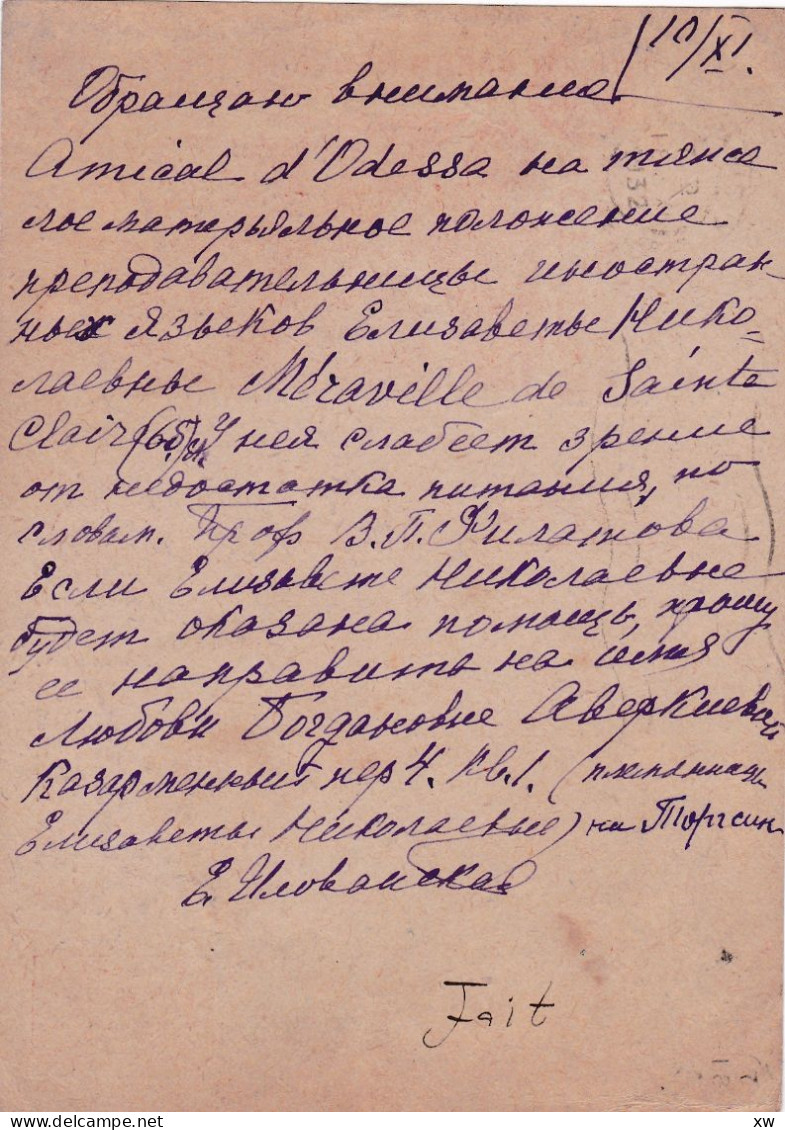 11/XI.
Обращаю внимание
Amical d'Odessa на тяже
лое матерьяльное положение
преподавательницы иностран-
ных языков Елизаветы Нико-
лаевны Méraville de Sainte
Clair (65) У нея слабеет зрение
от недостатка питания, по
словам. Проф В.П. Филатова
Если Елизавете Николаевне
будет оказана помощь, прошу
ее направить на имя
Любови Богдановне Аверкиевой
Казарменный пер 4. кв. 1. (племянница
Елизаветы Николаевны) на Торгсин
Е. Иловайская
Fait
xw